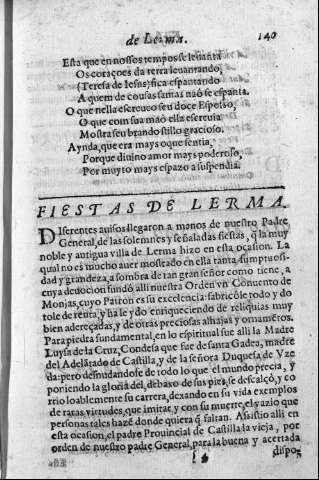 de Lerma. 140
Esta que en nossos tempos se leuanta
Os coraçoes da terra leuantando,
(Teresa de Iesas) fica espantando
A quem de cousas santas naó se espanta.
O que nella escreueo seu doce Esposso,
O que com sua maó ella escreuia
Mostra seu brando stillo gracioso.
Aynda, que era mays o que sentia,
Porque diuino amor mays poderoso,
Por muyto mays espazo a suspendia.
FIESTAS DE LERMA.
Diferentes auisos llegaron a manos de nuestro Padre
General, de las solemnes y señaladas fiestas, q̃ la muy
noble y antigua villa de Lerma hizo en esta ocasion. La
qual no es mucho auer mostrado en ella tanta sumptuosi-
dad y grandeza, a sombra de tan gran señor como tiene, a
cuya deuocion fundó alli nuestra Orden vn Conuento de
Monjas, cuyo Patron es su excelencia: fabricóle todo y do
tole de renta, y hale ydo enriqueciendo de reliquias muy
bien adereçadas, y de otras preciosas alhajas y ornamẽtos.
Para piedra fundamental, en lo espiritual fue alli la Madre
Luysa de la Cruz, Condesa que fue de santa Gadea, madre
del Adelãtado de Castilla, y de la señora Duquesa de Vze
da: pero desnudandose de todo lo que el mundo precia, y
poniendo la gloria del, debaxo de sus pies, se descalçó, y co
rrio loablemente su carrera, dexando en su vida exemplos
de raras virtudes, que imitar, y con su muerte, el vazio que
personas tales hazẽ donde quiera q̃ faltan. Asistio alli en
esta ocasion, el padre Prouincial de Castilla la vieja, por
orden de nuestro padre General, para la buena y acertada
dispos